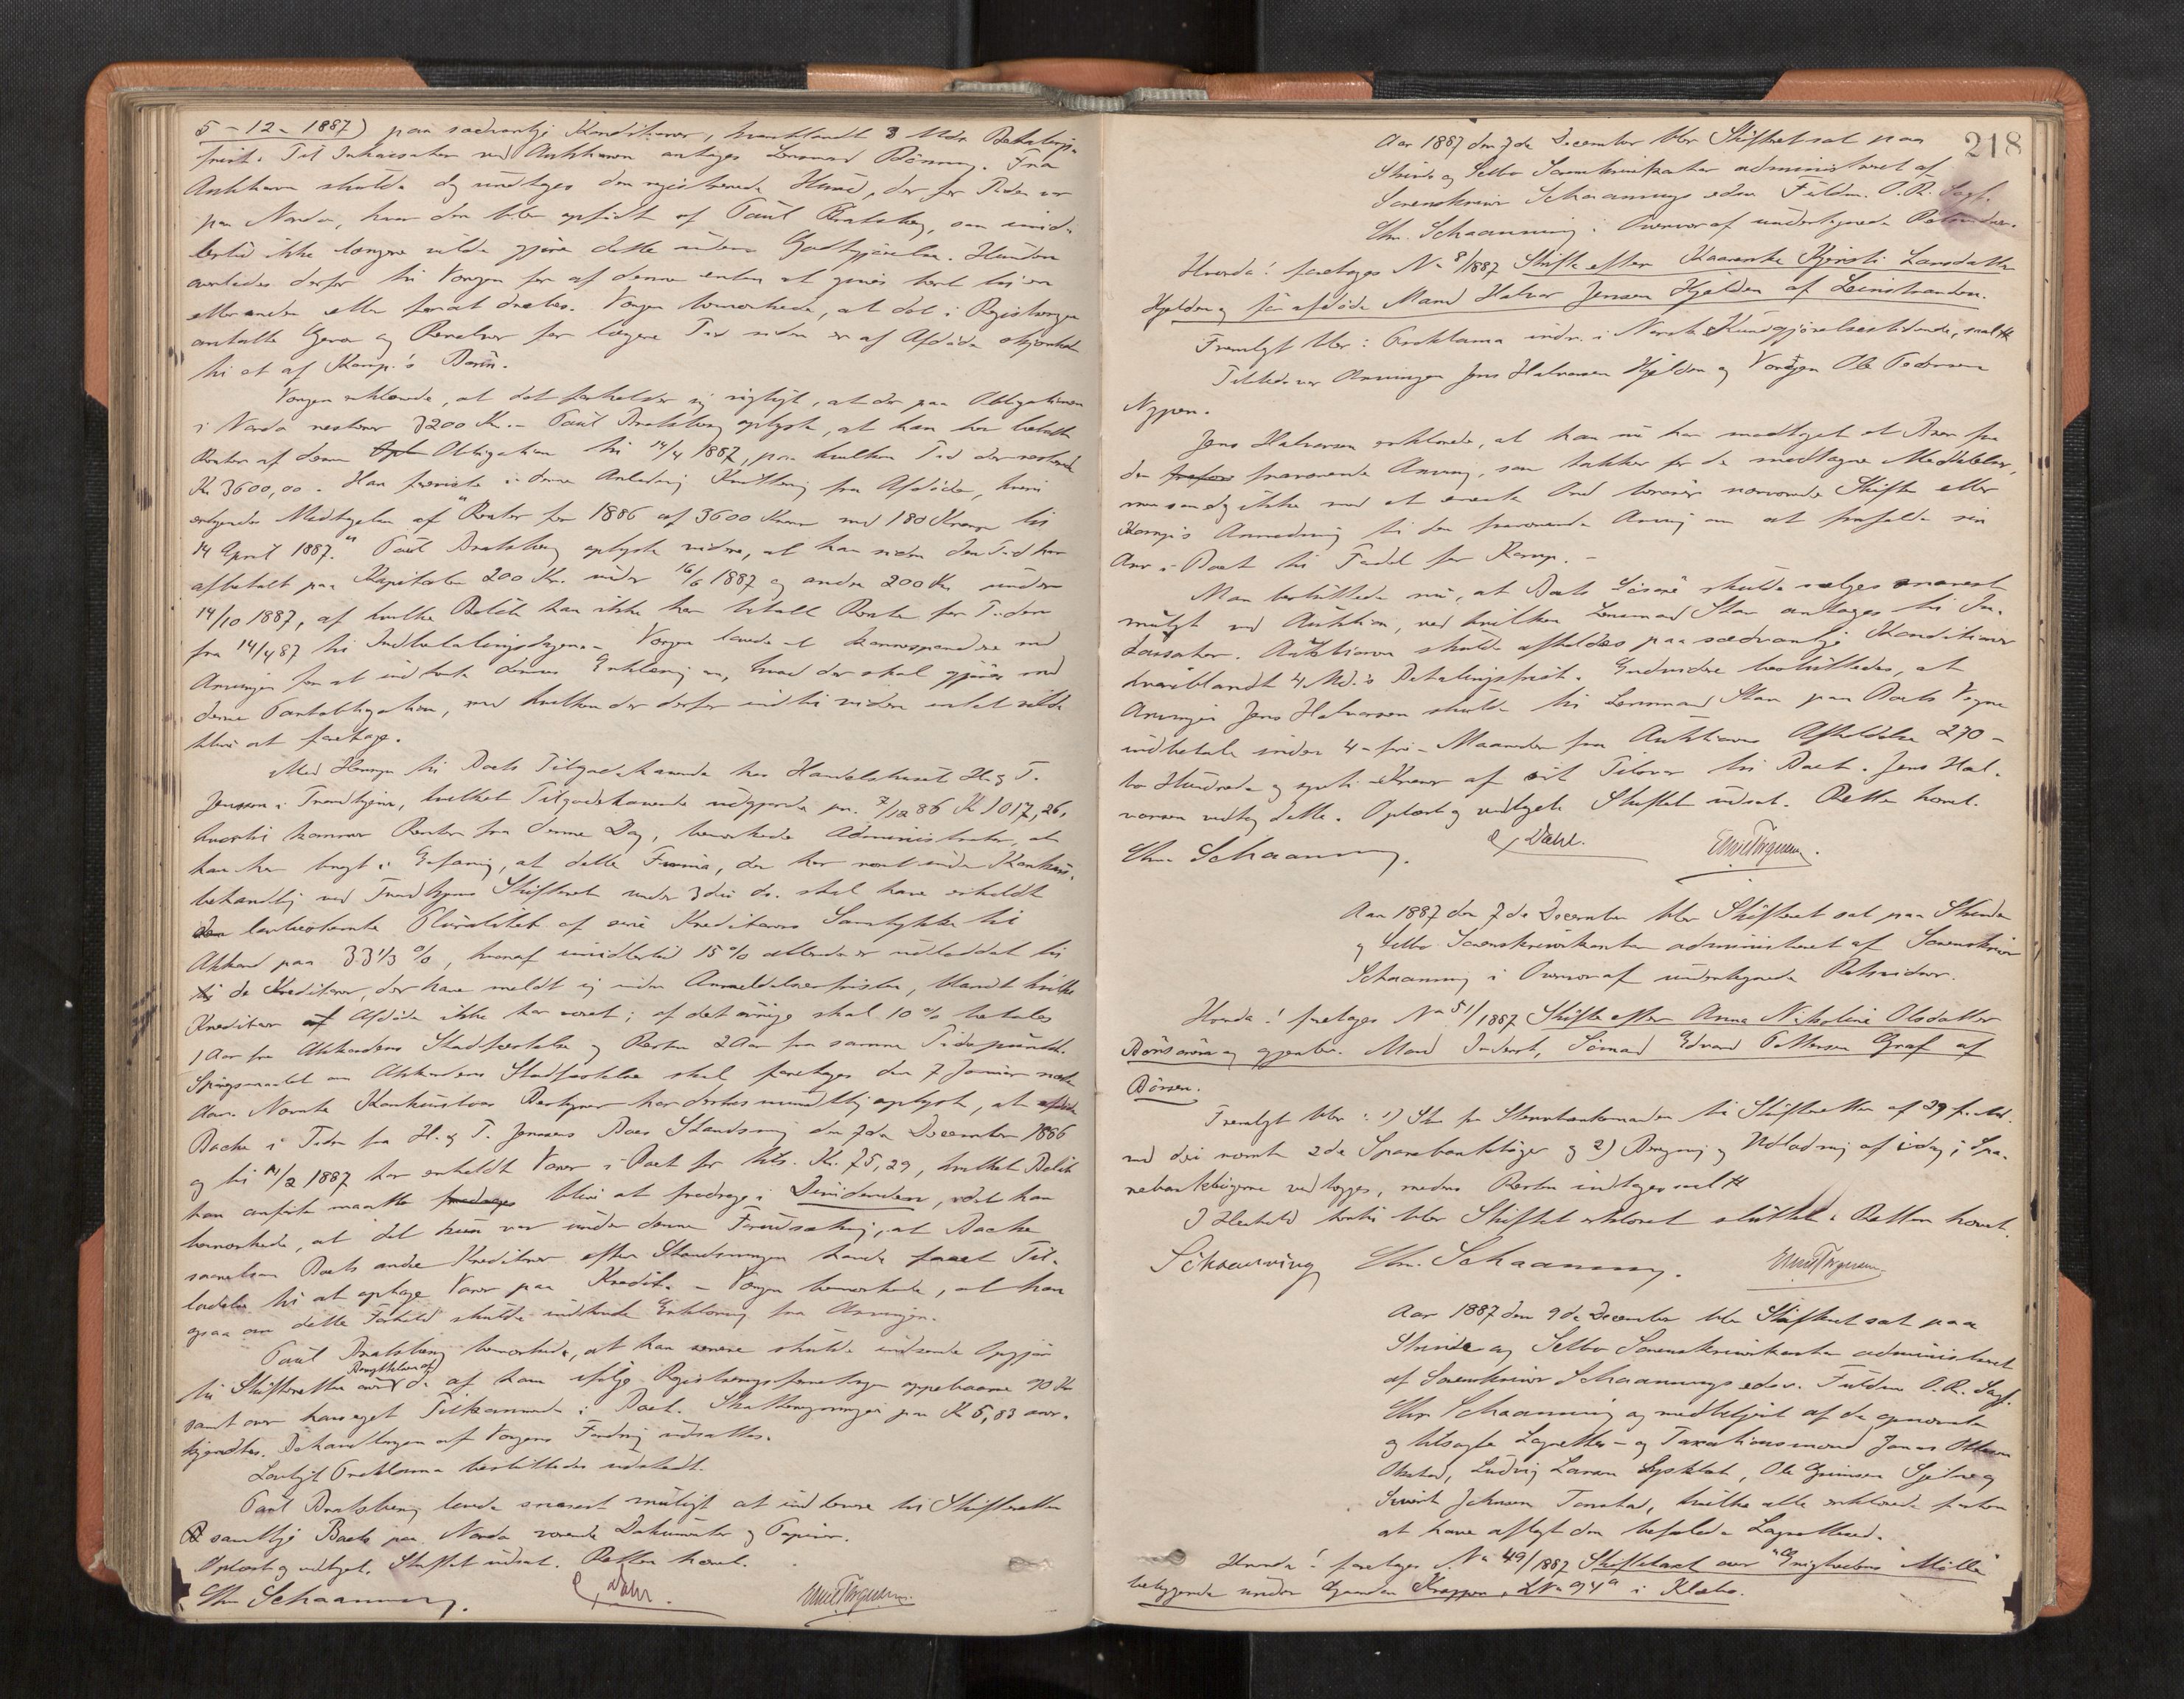 5 - 12 - 1887) paa sædvanlige Konditioner, hvoriblandt 3 Mdrs Betalings-
frist. Til Inkassator ved Auktionen antages Lensmand Bönning. Fra
Auktionen skulde dog undtages den registrerede Hund, der for Tiden er
paa Narda, hvor den blev opfödt af Paul Bratsberg, som imid-
lertid ikke længere vilde gjöre dette uden Godtgjörelse. Hunden
overlodes derfor til Vergen for af denne enten at gives bort til en
eller anden eller forat dræbes. Vergen bemærkede, at det i Registringen
antalte Gevær og Revolver for længere Tid siden er af Afdöde skjænket
til et af Komp.'s Börn.
Vergen erklærede, at det forholder sig rigtigt, at der paa Obligationen
i Narda resterer 3200 Kr. - Paul Bratsberg oplyste, at han har betalt
Renter af denne Obligation til 14/4 1887, paa hvilken Tid der resterede
Kr 3600,00. Han foreviste i denne Anledning Kvittering fra Afdöde, hvori
erkjendes Modtagelsen af "Renter for 1886 af 3600 Kroner med 180 Kroner til
14 April 1887." Paul Bratsberg oplyste videre, at han siden den Tid har
afbetalt paa Kapitalen 200 Kr. under 16/6 1887 og andre 200 Kr under
14/10 1887, af hvilke Belöb han ikke har betalt Rente for Tiden
fra 14/4 87 til Indbetalingsdagene. Vergen lovede at korrespondere med
Arvingen for at indhente dennes Erklæring om, hvad der skal gjöres med
denne Pantobligation, med hvilken der derfor indtil videre intet vilde
blive at foretage.
Med Hensyn til Boets Tilgodehavende hos Handelshuset H. & T.
Jenssen i Trondhjem, hvilket Tilgodehavende udgjorde pr. 7/12 86 Kr 1017,26,
hvortil kommer Renter fra denne Dag, bemærkede Administrator, at
han har bragt i Erfaring, at dette Firma, der har været under Konkurs-
behandling ved Trondhjems Skifteret under 3die ds. skal have erholdt
den lovbestemte Pluralitet af sine Kreditorers Samtykke til
Akkord paa 33 1/3 %, hvoraf imidlertid 15 % allerede er udloddet til
de Kreditorer, der have meldt sig inden Anmeldelsesfristen, blandt hvilke
Kreditorer Afdöde ikke har været; af det övrige skal 10 % betales
1 Aar fra Akkordens Stadfæstelse og Resten 2 Aar fra samme Tidspunkt.
Spörgsmaalet om Akkordens Stadfæstelse skal foretages den 7 Januar næste
Aar. Nævnte Konkursboes Bestyrer har derhos mundtlig oplyst, at afdöde
Bache i Tiden fra H. & T. Jenssens Boes Standsning den 7de December 1886
og til 11/2 1887 har erholdt Varer i Boet for tils. Kr. 75,29, hvilket Belöb
han anförte maatte blive at fradrage i Dividenden, idet han
bemærkede, at det kun var under denne Forudsætning, at Bache
saavelsom Boets andre Kreditorer efter Standsningen havde faaet Til-
ladelse til at optage Varer paa Kredit. - Vergen bemærkede, at han
ogsaa om dette Forhold skulde indhente Erklæring fra Arvingen.
Paul Bratsberg bemærkede, at han senere skulde indsende Opgjör
til Skifteretten over Benyttelsen af de af ham ifölge Registreringsforretningen oppebaarne 90 Kr
samt over hans eget Tilkommende i Boet. Skatteregningen paa Kr 5,83 aner-
kjendtes. Behandlingen af Vergens Fordring udsattes.
Lovligt Proklama besluttedes udstedt.
Paul Bratsberg lovede snarest muligt at indlevere til Skifteretten
samtlige Boets paa Narda værende Dokumenter og Papirer.
Oplæst og vedtaget. Skiftet udsat. Retten hævet.
Chr. Schaanning. E Dahl. Emil Torgersen.
218
Aar 1887 den 7de December blev Skifteret sat paa
Strinde og Selbo Sorenskriverkontor administreret af
Sorenskriver Schaannings edsv. Fuldm. O.R. Sagf.
Chr. Schaanning i Overvær af undertegnede Retsvidner.
Hvorda! foretoges No 8/1887 Skifte efter Kaarenke Kjersti Larsdatter
Hjelden og för afdöde Mand Halvor Jensen Hjelden af Leinstranden.
Fremlagt blev: Proklama indr. i Norsk Kundgjörelsestidende, saal H
Tilstede var Arvingen Jens Halvorsen Hjelden og Vergen Ole Pedersen
Nypen.
Jens Halvorsen erklærede, at han nu har modtaget et Brev fra
den fraværende Arving, som takker for de modtagne Meddelelser,
men som dog ikke med et eneste Ord berörer nærværende Skifte eller
Komp's Anmodning til den fraværende Arving om at frafalde sin
Arv i Boet til Fordel for Komp. -
Man besluttede nu, at Boets Lösöre skulde sælges snarest
muligt ved Auktion, ved hvilken Lensmand Stav antages til In-
kassator. Auktionen skulde afholdes paa sædvanlige Konditioner
hvoriblandt 4 Md.'s Betalingsfrist. Endvidere besluttedes, at
Arvingen Jens Halvorsen skulde til Lensmand Stav paa Boets Vegne
indbetale inden 4 - fire - Maaneder fra Auktionens Afholdelse 270 -
to Hundrede og sytti - Kroner af sit Tilsvar til Boet. Jens Hal-
vorsen vedtog dette. Oplæst og vedtaget. Skiftet udsat. Retten hævet.
Chr. Schaanning. E Dahl. Emil Torgersen.
Aar 1887 den 7de December blev Skifteret sat paa Strinde
og Selbo Sorenskriverkontor administreret af Sorenskriver
Schaanning i Overvær af undertegnede Retsvidner.
Hvorda! foretoges No 51/1887 Skifte efter Anna Nikoline Olsdatter
Börsören og gjenlev. Mand Inderst, Sömand Edvard Pettersen Graf af
Börsen.
Fremlagt blev: 1) Skr fra Skifteretten af 29 f. Md.
med deri nævnte 2de Sparebankböger og 2) Beregning og Udlodning af idag; Spa-
rebankbögerne vedlægges, medens Resten indtages saal H
I Henhold hertil blev Skiftet erklæret sluttet. Retten hævet.
Schaanning Chr. Schaanning. Emil Torgersen.
Aar 1887 den 9de December blev Skifteret sat paa
Strinde og Selbo Sorenskriverkontor administreret
af Sorenskriver Schaannings edsv. Fuldm O.R. Sagf.
Chr Schaanning og medbetjent af de opnævnte
og tilsagte Lagrettes- og Taxationsmænd Jonas Olsen
Okstad, Ludvig Larsen Lysklæt, Ole Sjetne og
Sivert Johnsen Tonstad, hvilke alle erklærede forhen
at have aflagt den befalede Lagretteed.
Hvorda! foretoges No 49/1887 Skiftetaxt over "Enighedens Mölle"
beliggende under Gaarden Kroppan, LNo 94a i Klæbo.